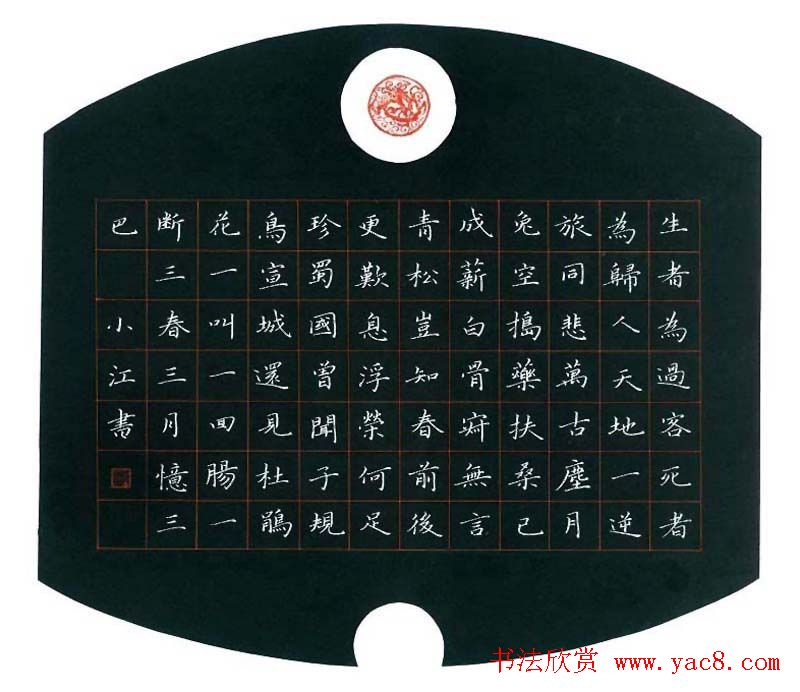 生者為過客死者
為歸人天地一逆
旅同悲萬古塵月
兔空搗藥扶桑已
成薪白骨寂無言
青松豈知春前後
更歎息浮榮何足
珍蜀國曾聞子規
鳥宣城還見杜鵑
花一叫一回腸一
断三春三月憶三
巴 小江書
书法欣赏 www.yac8.com